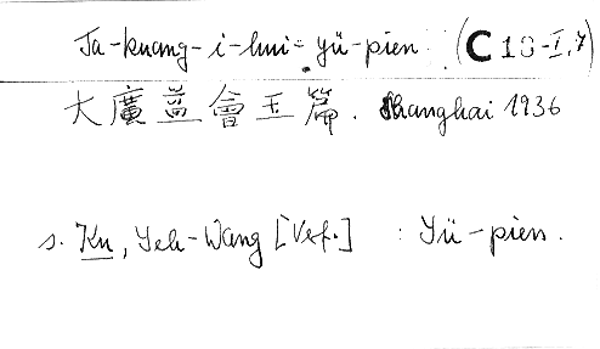 Ta-kuang-i-hui-yü-pien (C 10-I,7)
大廣益會玉篇. Shanghai 1936
s. Ku, Yeh-Wang [Verf.] : Yü-pien.